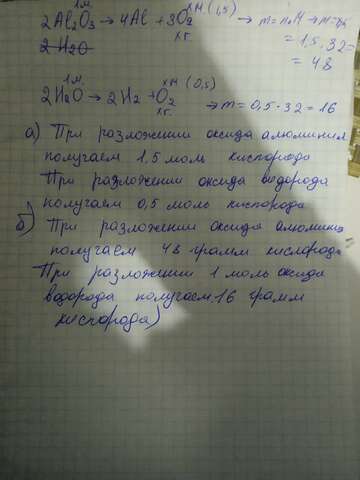 1м. хм. (1,5)
2Al₂O₃ → 4Al + 3O₂ → m = n·M →
хг. = 1,5·32 =
2 H2O = 48
1м. хм (0,5)
2H₂O → 2H₂ + O₂ → m = 0,5·32 = 16
хг.
а) При разложении оксида алюминия
получаем 1,5 моль кислорода
При разложении оксида водорода
получаем 0,5 моль кислорода
б) При разложении оксида алюмин
получаем 48 грамм кислорода
При разложении 1 моль оксида
водорода получаем 16 грамм
кислорода)